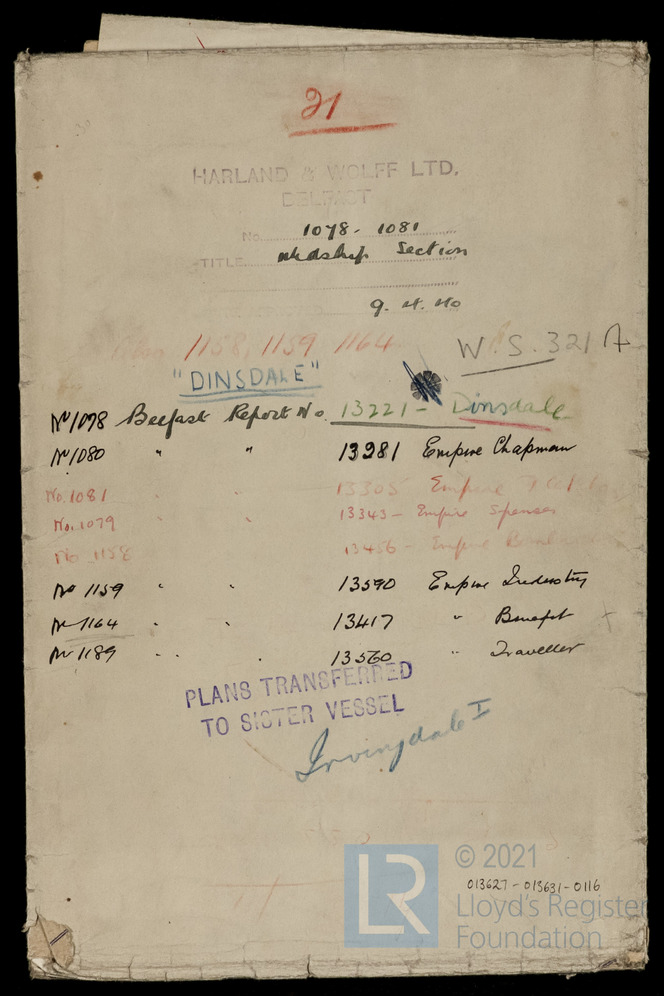 21
HARLAND & WOLFF LTD.
BELFAST
No. 1078 - 1081
TITLE Midship Section
9. 4. 40
Also 1158, 1159 1164
W.S. 321 A
"DINSDALE"
No 1078 Belfast Report No. 13221 - Dinsdale
No 1080 " " 13281 Empire Chapman
No. 1081 " " 13305 Empire
No. 1079 " " 13343 - Empire Spenser
No. 1158 13456 - Empire
No 1159 " " 13590 Empire Industry
No 1164 " " 13417 " Benefit
No 1189 " " 13560 " Traveller
PLANS TRANSFERRED
TO SISTER VESSEL
Irvingdale I
LR
© 2021
013627-013631-0116
Lloyd's Register
Foundation